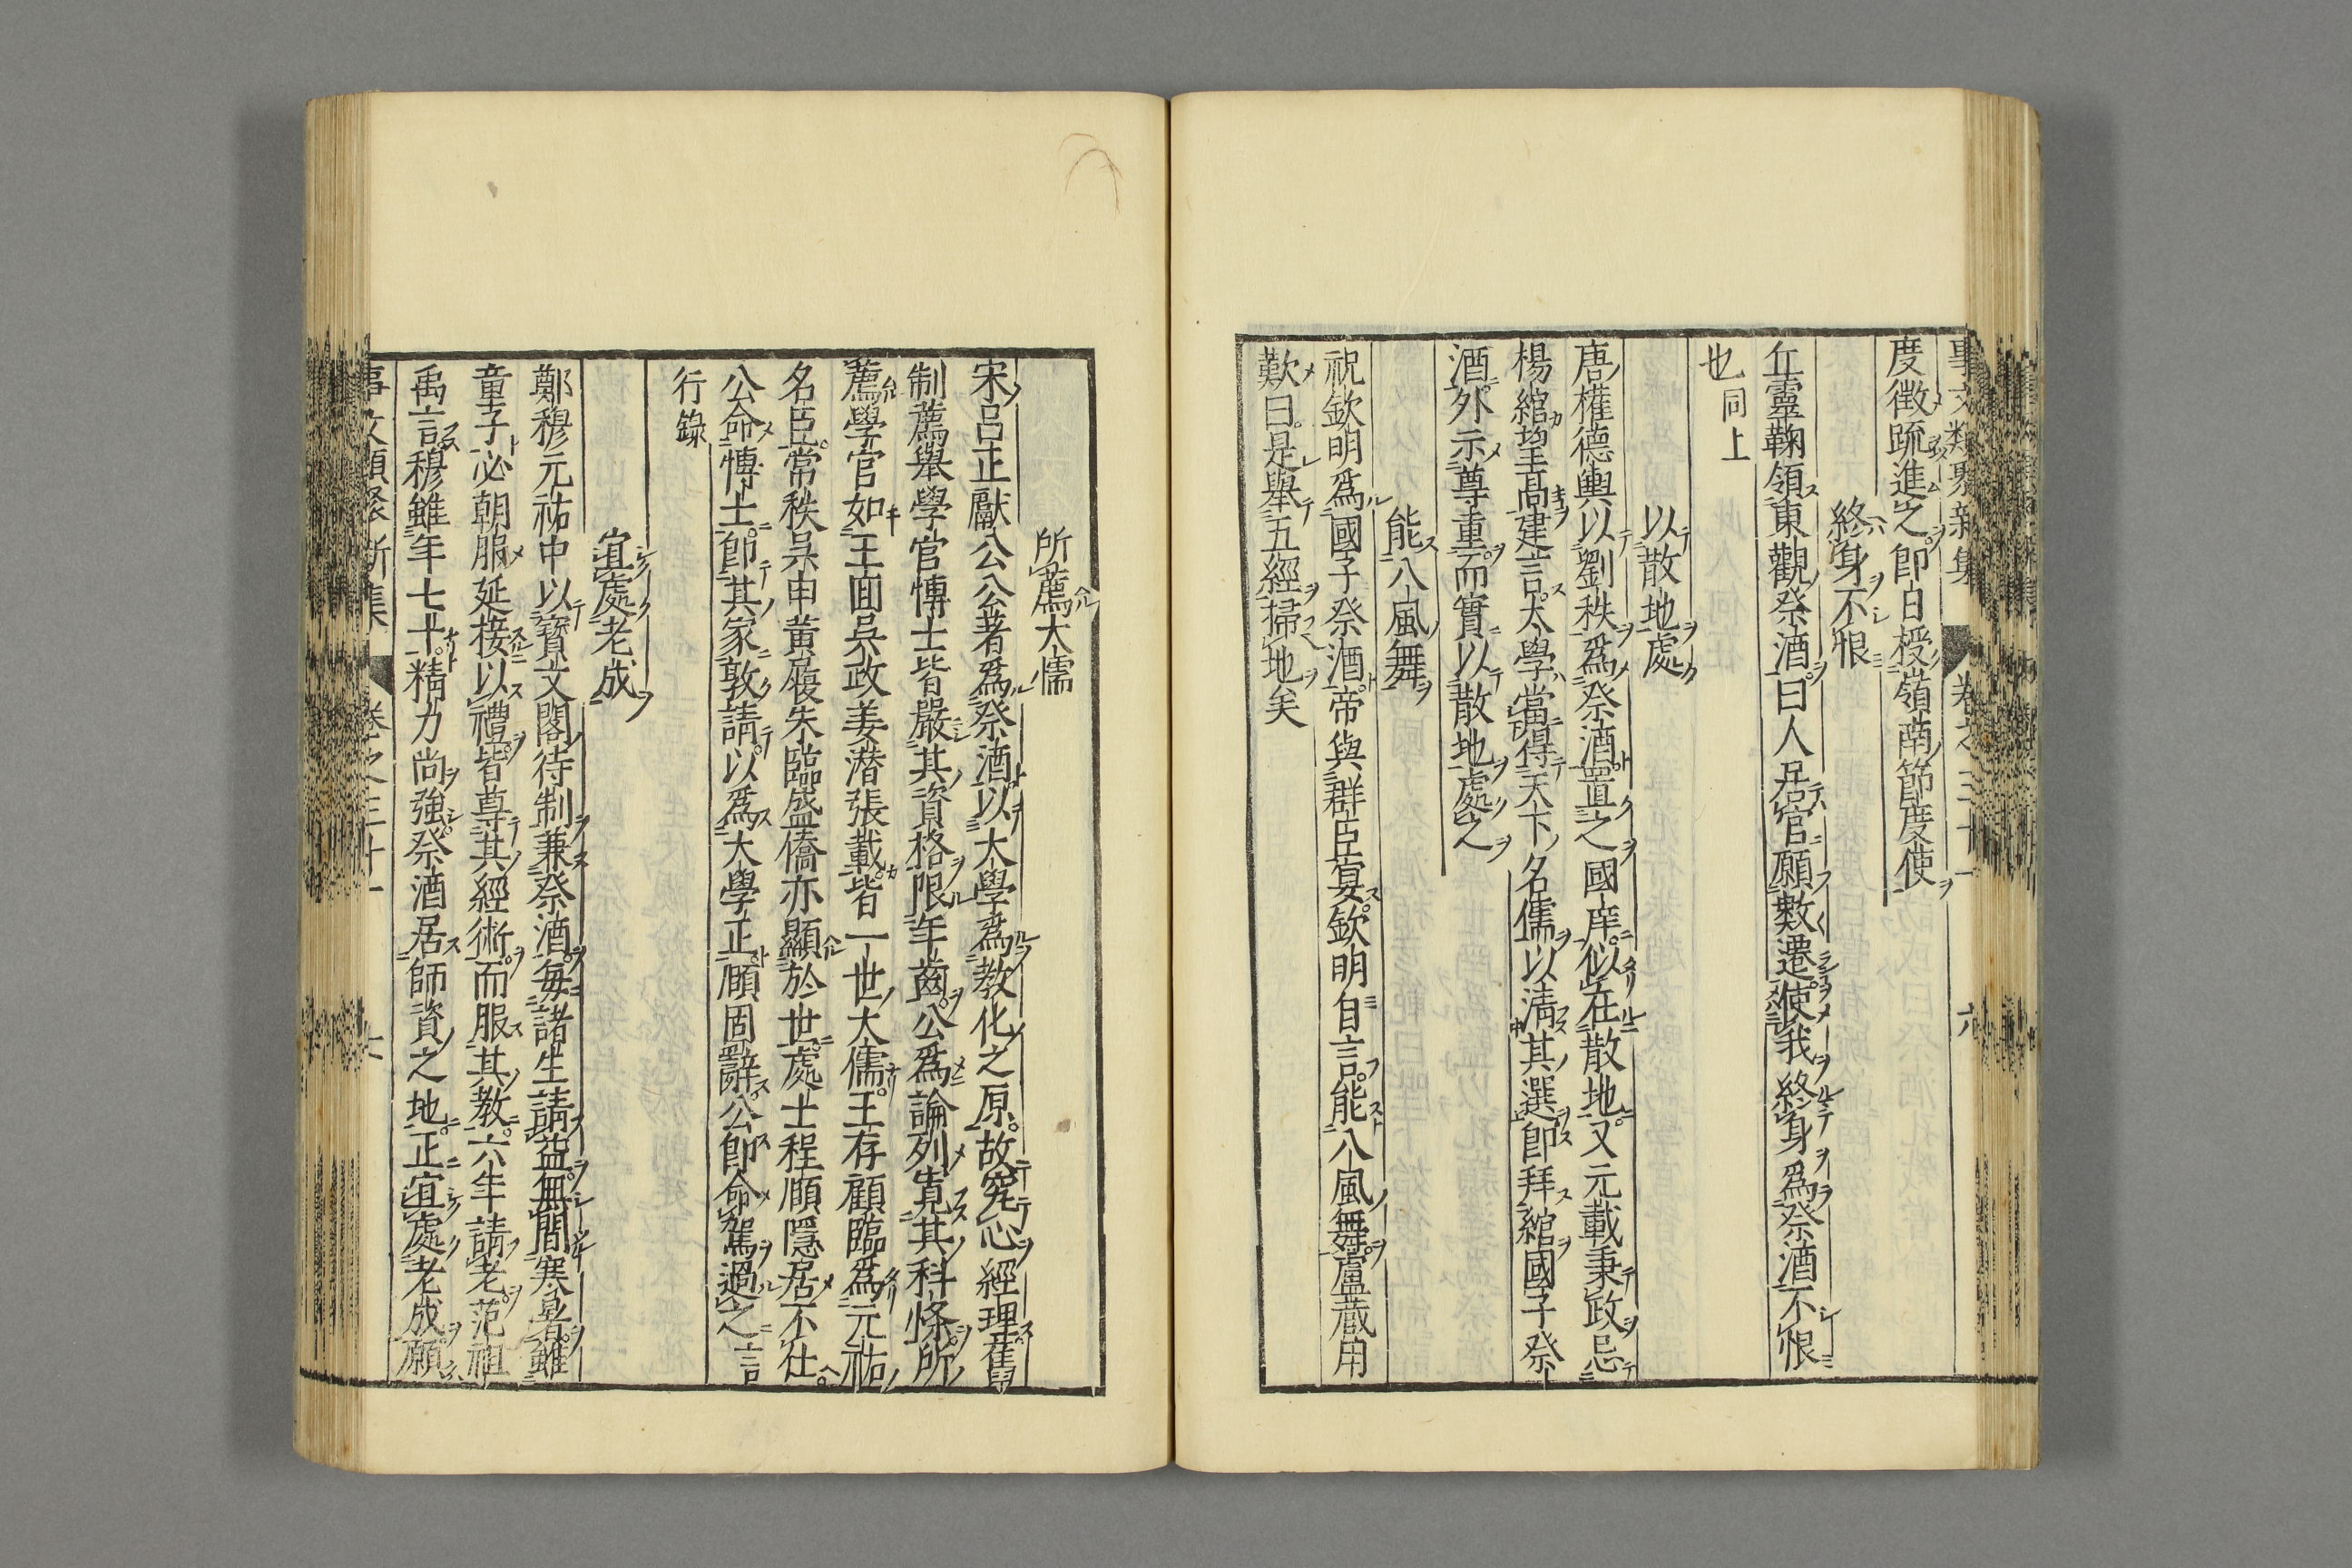 事文類聚新集 卷之三十一 六
度徵疏進之即白授嶺南節度使
終身不恨
丘靈鞠領東觀祭酒曰人居官願數遷使我終身爲祭酒不恨
也同上
以散地處
唐權德輿以劉秩爲祭酒置之國庠似在散地又元載秉政忌
楊綰望高建言太學當得天下名儒以淸其選即拜綰國子祭
酒外示尊重而實以散地處之
能八風舞
祝欽明爲國子祭酒帝與群臣宴欽明自言能八風舞盧藏用
歎曰是舉五經掃地矣
所薦大儒
宋呂正獻公公著爲祭酒以大學爲教化之原故究心經理舊
制薦舉學官博士皆嚴其資格限年齒公爲論列寬其科條所
薦學官如王回吳政姜潜張載皆一世大儒王存顧臨爲元祐
名臣常秩吳申黄履朱臨盛僑亦顯於世處士程頤隱居不仕
公命博士即其家敦請以爲大學正頤固辭公即命駕過之言
行錄
宜處老成
鄭穆元祐中以寳文閣待制兼祭酒每諸生請益無間寒暑雖
童子必朝服延接以禮皆尊其經術而服其教六年請老范祖
禹言穆雖年七十精力尚強祭酒居師資之地正宜處老成願
事文類聚新集 卷之三十一